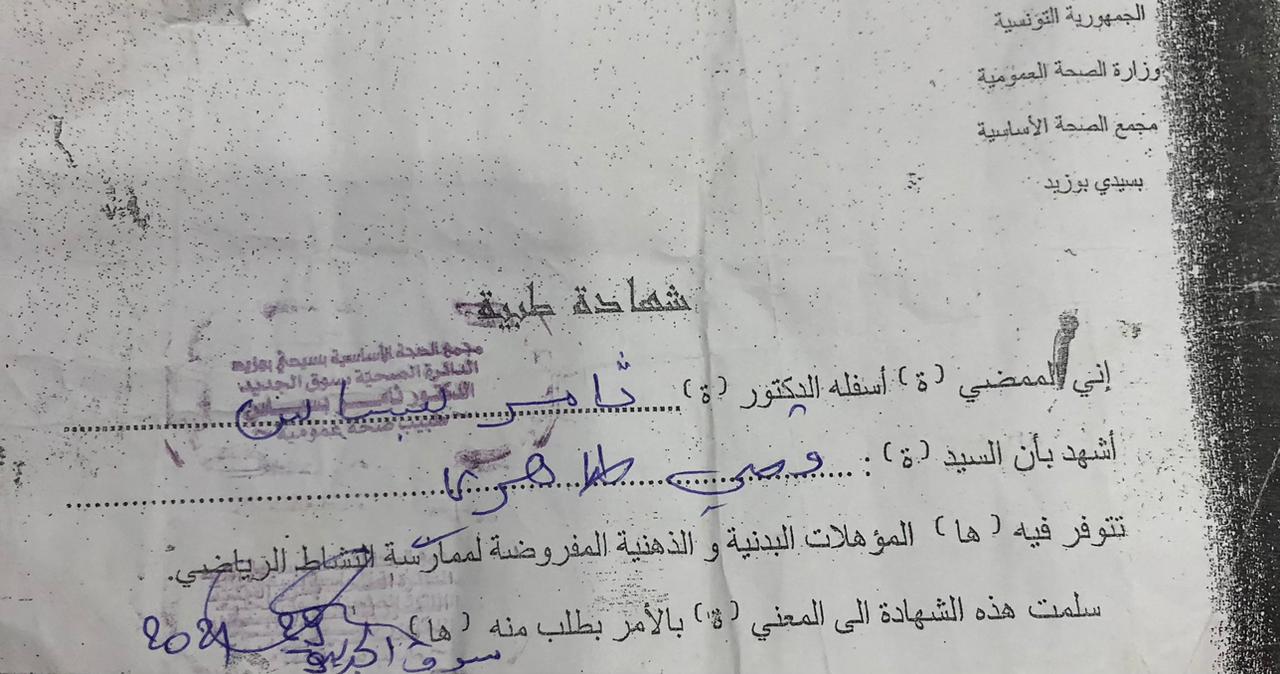 الجمهورية التونسية
وزارة الصحة العمومية
مجمع الصحة الأساسية
بسيدي بوزيد
شهادة طبية
مجمع الصحة الأساسية بسيدي بوزيد
الدائرة الصحية بسوق الجديد
الدكتور ثامر
طبيب صحة عمومية
إني الممضي (ة) أسفله الدكتور (ة) ثامر
أشهد بأن السيد (ة) :
تتوفر فيه (ها) المؤهلات البدنية و الذهنية المفروضة لممارسة النشاط الرياضي.
سلمت هذه الشهادة الى المعني (ة) بالأمر بطلب منه (ها)
سوق الجديد 29 2021